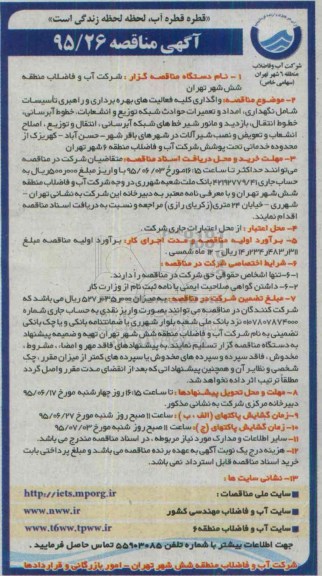 «قطره قطره آب، لحظه لحظه زندگی است»
آگهی مناقصه ۹۵/۲۶
شرکت آب و فاضلاب
منطقه ۶ شهر تهران
(سهامی خاص)
۱- نام دستگاه مناقصه گزار: شرکت آب و فاضلاب منطقه
شش شهر تهران
۲- موضوع مناقصه: واگذاری کلیه فعالیت های بهره برداری و راهبری تأسیسات
شامل نگهداری، امداد و تعمیرات حوادث شبکه توزیع و انشعابات، خطوط آبرسانی،
خطوط انتقال، بازدید و مانور شیر خط های شبکه آبرسانی، انتقال و توزیع، اصلاح
انشعاب و تعویض و نصب شیرآلات در شهرهای باقر شهر- حسن آباد - کهریزک از
محدوده خدماتی تحت پوشش شرکت آب و فاضلاب منطقه ۶ شهر تهران
۳- مهلت خرید و محل دریافت اسناد مناقصه: متقاضیان شرکت در مناقصه
می توانند حداکثر تا ساعت ۱۶:۱۵ مورخ ۹۵/۰۶/۰۳ با واریز مبلغ ۵۰۰٫۰۰۰ ریال به
حساب جاری بانک ملت شعبه شهرری در وجه شرکت آب و فاضلاب منطقه
شش شهر تهران و با معرفی نامه معتبر به دبیرخانه این شرکت به نشانی تهران -
شهرری - خیابان ۲۴ متری (زکریای رازی) مراجعه و نسبت به دریافت اسناد مناقصه
اقدام نمایند.
۴- محل اعتبار: از محل اعتبارات جاری شرکت.
۵- برآورد اولیه مناقصه و مدت اجرای کار: برآورد اولیه مناقصه مبلغ
ریال - ۱۲ ماه شمسی.
۶- شرایط اختصاصی شرکت در مناقصه:
۶-۱- تنها اشخاص حقوقی حق شرکت در مناقصه را دارند.
۶-۲- داشتن گواهی صلاحیت ایمنی یا نامه ثبت نام از وزارت کار
۷- مبلغ تضمین شرکت در مناقصه: به میزان ۵۲۷٫۶۳۵٫۰۰۰ ریال می باشد که
شرکت کنندگان در مناقصه می توانند بصورت واریز نقدی به حساب جاری شماره
نزد بانک ملی شعبه بلوار شهرری یا ضمانتنامه بانکی و یا چک بانکی
تضمینی به نام شرکت آب و فاضلاب منطقه شش شهر تهران تهیه و ضمیمه پیشنهاد
به دستگاه مناقصه گزار تسلیم نمایند. به پیشنهادهای فاقد مهر و امضا، مشروط،
مخدوش، فاقد سپرده و سپرده های مخدوش یا سپرده های کمتر از میزان مقرر، چک
شخصی و نظایر آن و همچنین پیشنهاداتی که بعد از انقضای مدت مقرر واصل گردد
مطلقاً ترتیب اثر داده نخواهد شد.
۸- مهلت و محل تحویل پیشنهادها: تا ساعت ۱۶:۱۵ روز چهارشنبه مورخ ۹۵/۰۶/۱۷
دبیرخانه مرکزی شرکت به نشانی مذکور.
۹- زمان گشایش پاکتهای (الف - ب): ساعت ۱۱ صبح روز شنبه مورخ ۹۵/۰۶/۲۷
۱۰- زمان گشایش پاکتهای (ج): ساعت ۱۱ صبح روز شنبه مورخ ۹۵/۰۷/۰۳
۱۱- سایر اطلاعات و مدارک مورد نیاز مربوطه، در اسناد مناقصه مندرج می باشد.
۱۲- هزینه درج یک نوبت آگهی به عهده برنده مناقصه می باشد و مبلغ پرداختی بابت
خرید اسناد مناقصه قابل استرداد نمی باشد.
۱۳- نشانی سایت ها:
سایت ملی مناقصات: http://iets.mporg.ir
سایت آب و فاضلاب مهندسی کشور www.nww.ir
سایت آب و فاضلاب منطقه ۶ www.t6ww.tpww.ir
جهت اطلاعات بیشتر با شماره تلفن ۵۵۹۰۳۰۸۵ تماس حاصل فرمایید.
شرکت آب و فاضلاب منطقه شش شهر تهران - امور بازرگانی و قراردادها